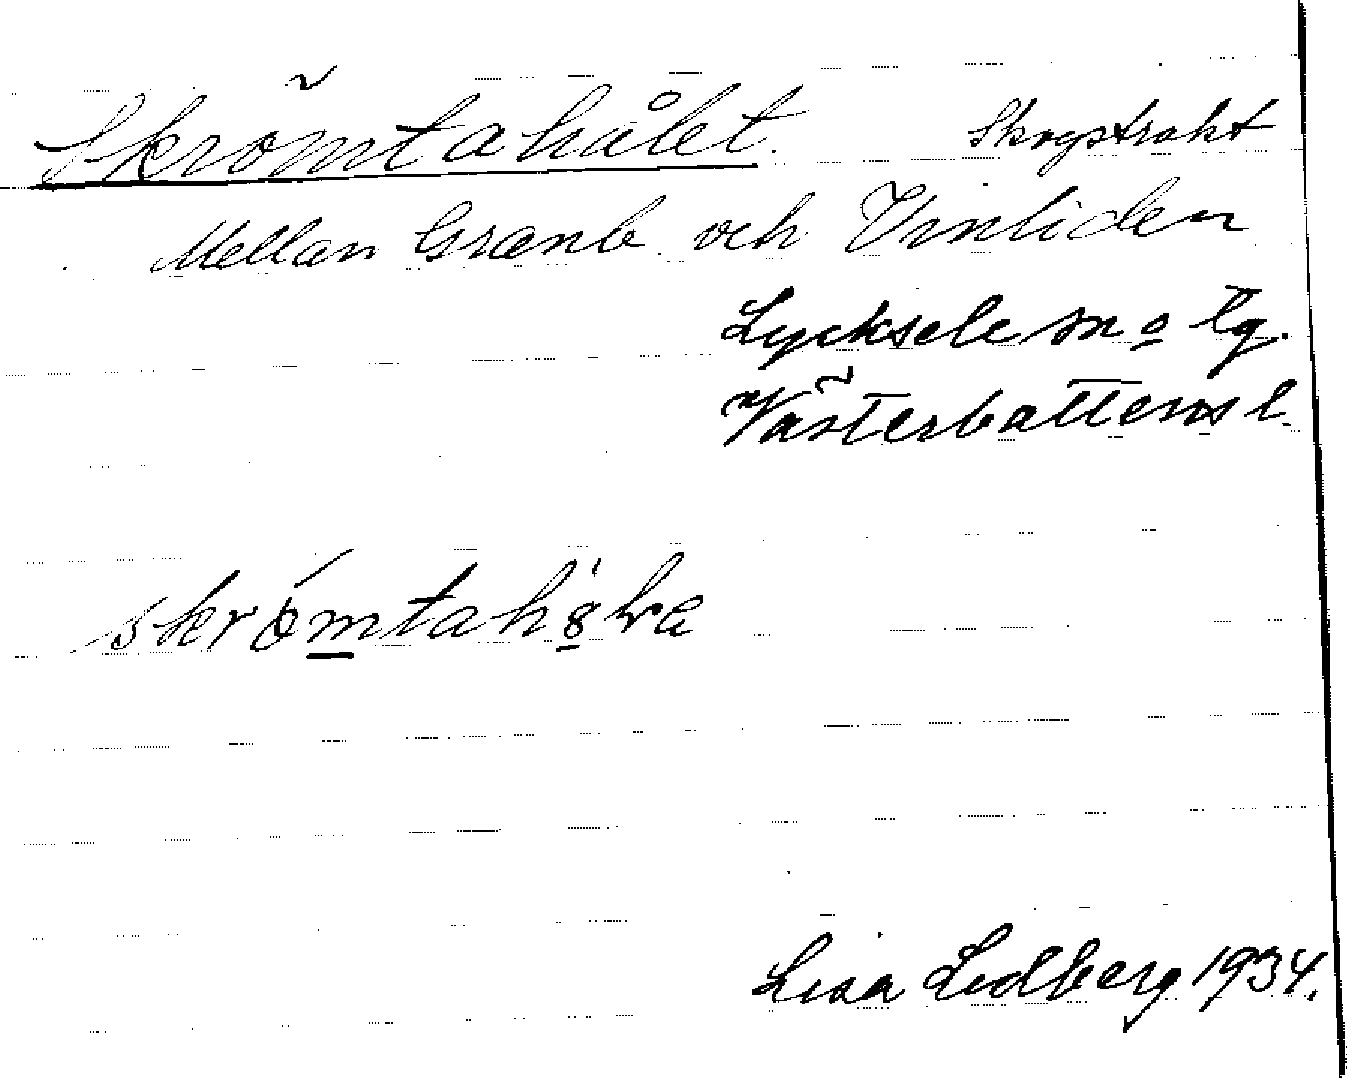 Skrömtahålet. Skogstrakt
Mellan Granb och Vinliden
Lycksele sn o tg.
Västerbottens l.
Lisa Lidberg 1934.